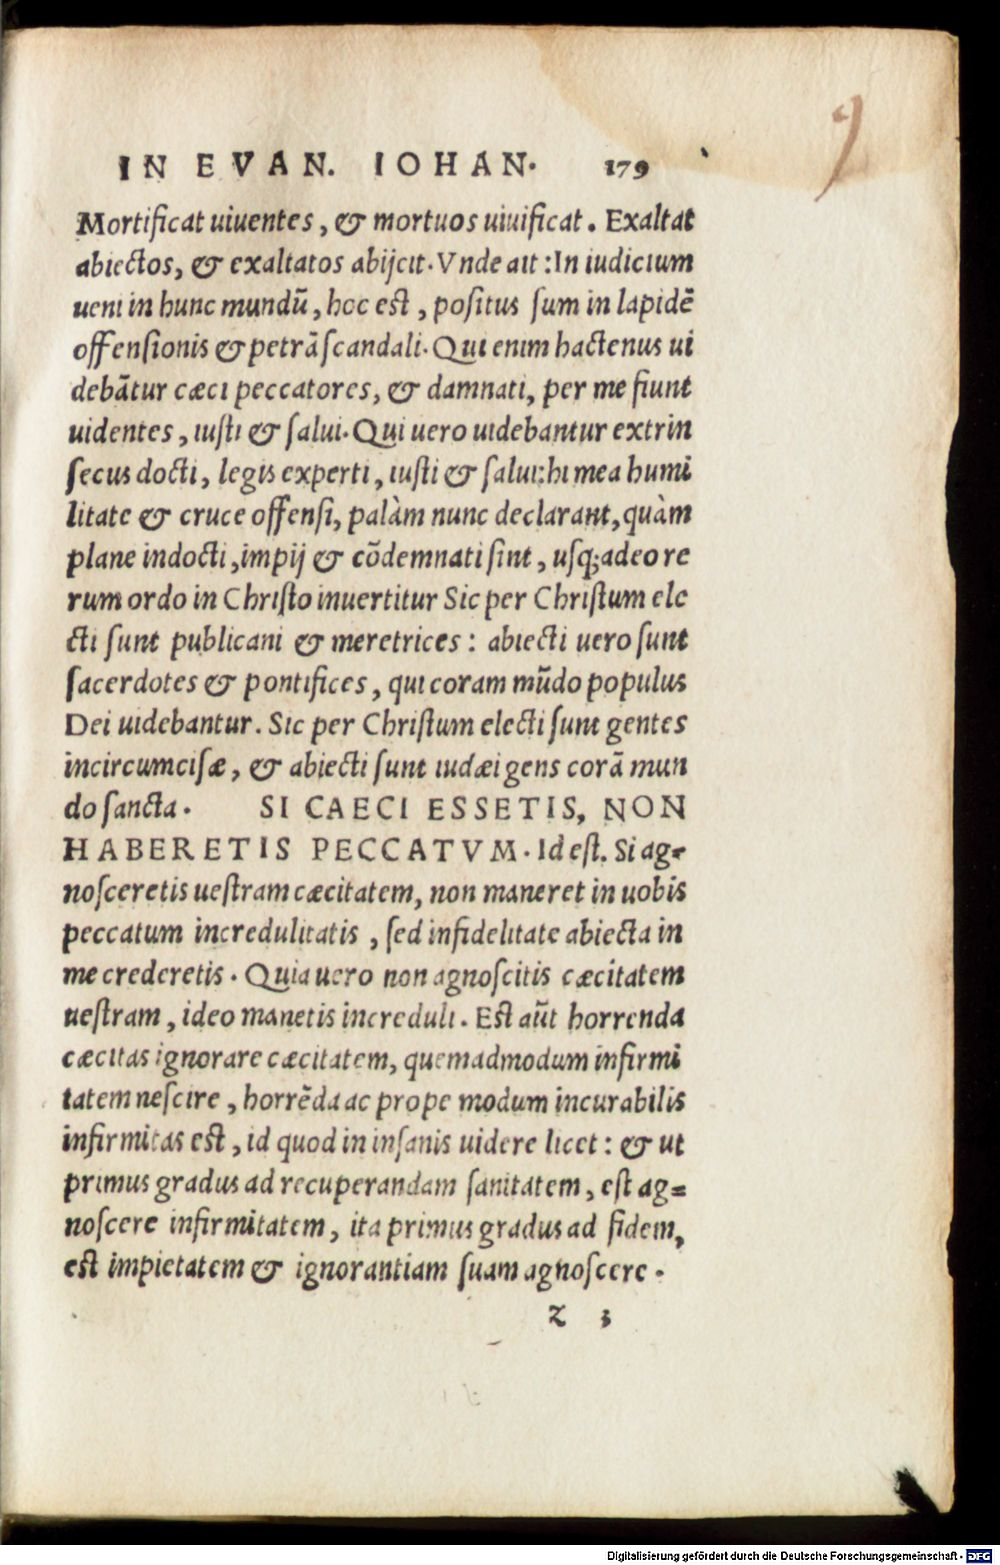 IN EVAN. IOHAN. 179
9
Mortificat uiuentes, & mortuos uiuificat. Exaltat
abiectos, & exaltatos abijcit. Vnde ait: In iudicium
ueni in hunc mundū, hoc est, positus sum in lapidē
offensionis & petrā scandali. Qui enim hactenus ui
debātur cæci peccatores, & damnati, per me fiunt
uidentes, iusti & salui. Qui uero uidebantur extrin
secus docti, legis experti, iusti & salui: hi mea humi
litate & cruce offensi, palàm nunc declarant, quàm
plane indocti, impij & cōdemnati sint, usq; adeo re
rum ordo in Christo inuertitur Sic per Christum ele
cti sunt publicani & meretrices: abiecti uero sunt
sacerdotes & pontifices, qui coram mūdo populus
Dei uidebantur. Sic per Christum electi sunt gentes
incircumcisæ, & abiecti sunt iudæi gens corā mun
do sancta. SI CAECI ESSETIS, NON
HABERETIS PECCATVM. Id est. Si ag-
nosceretis uestram cæcitatem, non maneret in uobis
peccatum incredulitatis, sed infidelitate abiecta in
me crederetis. Quia uero non agnoscitis cæcitatem
uestram, ideo manetis increduli. Est aūt horrenda
cæcitas ignorare cæcitatem, quemadmodum infirmi
tatem nescire, horrēda ac prope modum incurabilis
infirmitas est, id quod in insanis uidere licet: & ut
primus gradus ad recuperandam sanitatem, est ag=
noscere infirmitatem, ita primus gradus ad fidem,
est impietatem & ignorantiam suam agnoscere.
Z 3
Digitalisierung gefördert durch die Deutsche Forschungsgemeinschaft - DFG